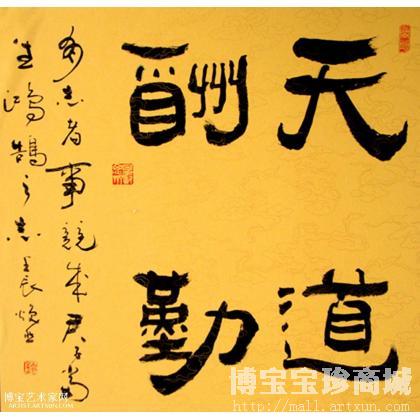 天道
酬勤
有志者事竟成君子當
生鴻鵠之志
博宝宝珍商城
http://mall.artxun.com
博宝艺术家网
http://artist.artxun.com